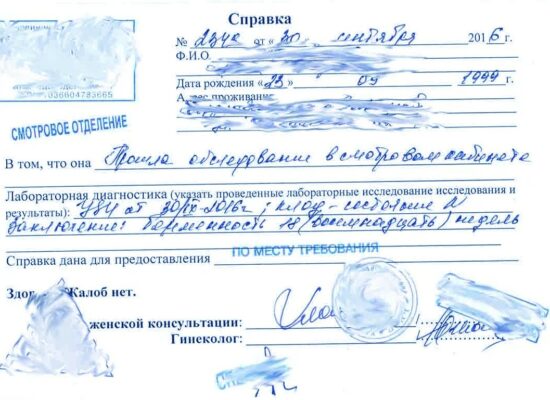 Справка
№ 2340 от «30» сентября 2016 г.
Ф.И.О.
Дата рождения «23» 09 1999 г.
036604783665
проживания
СМОТРОВОЕ ОТДЕЛЕНИЕ
В том, что она Прошла обследование в смотровом кабинете
Лабораторная диагностика (указать проведенные лабораторные исследование исследования и
результаты): УЗИ от 30/IX-2016г; состояние N
Заключение: беременность 18 (восемнадцать) недель
Справка дана для предоставления ПО МЕСТУ ТРЕБОВАНИЯ
Жалоб нет.
женской консультации:
Гинеколог: